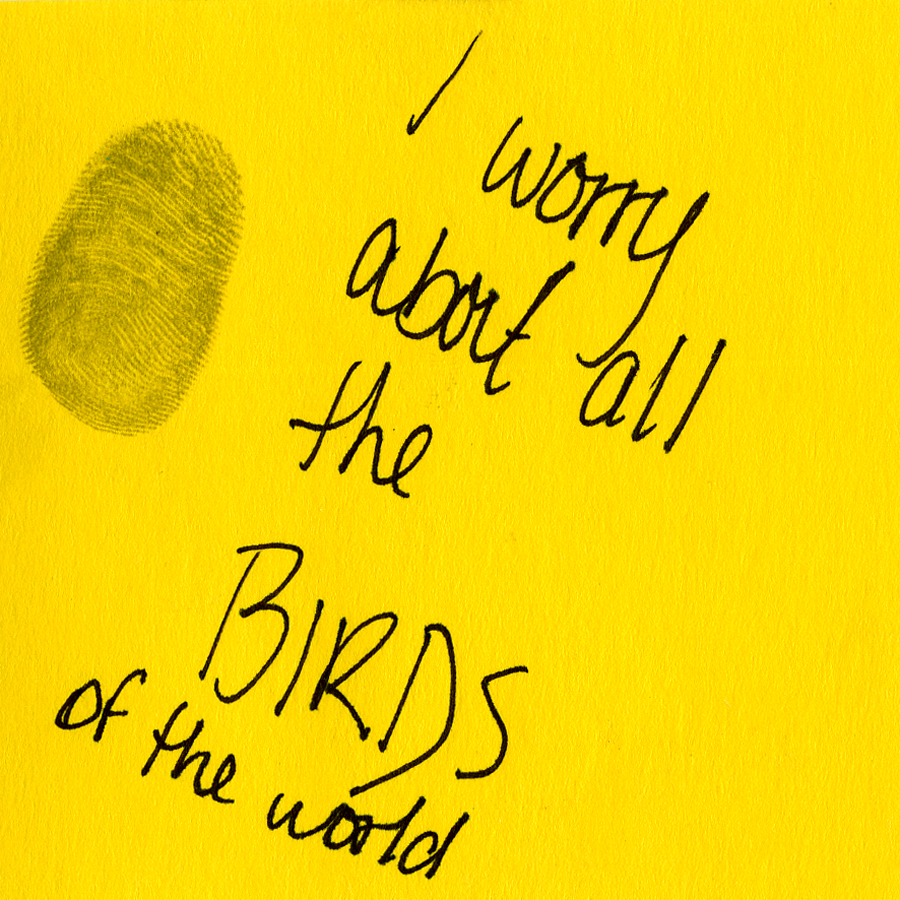 I
worry
about all
the
BIRDS
of the world